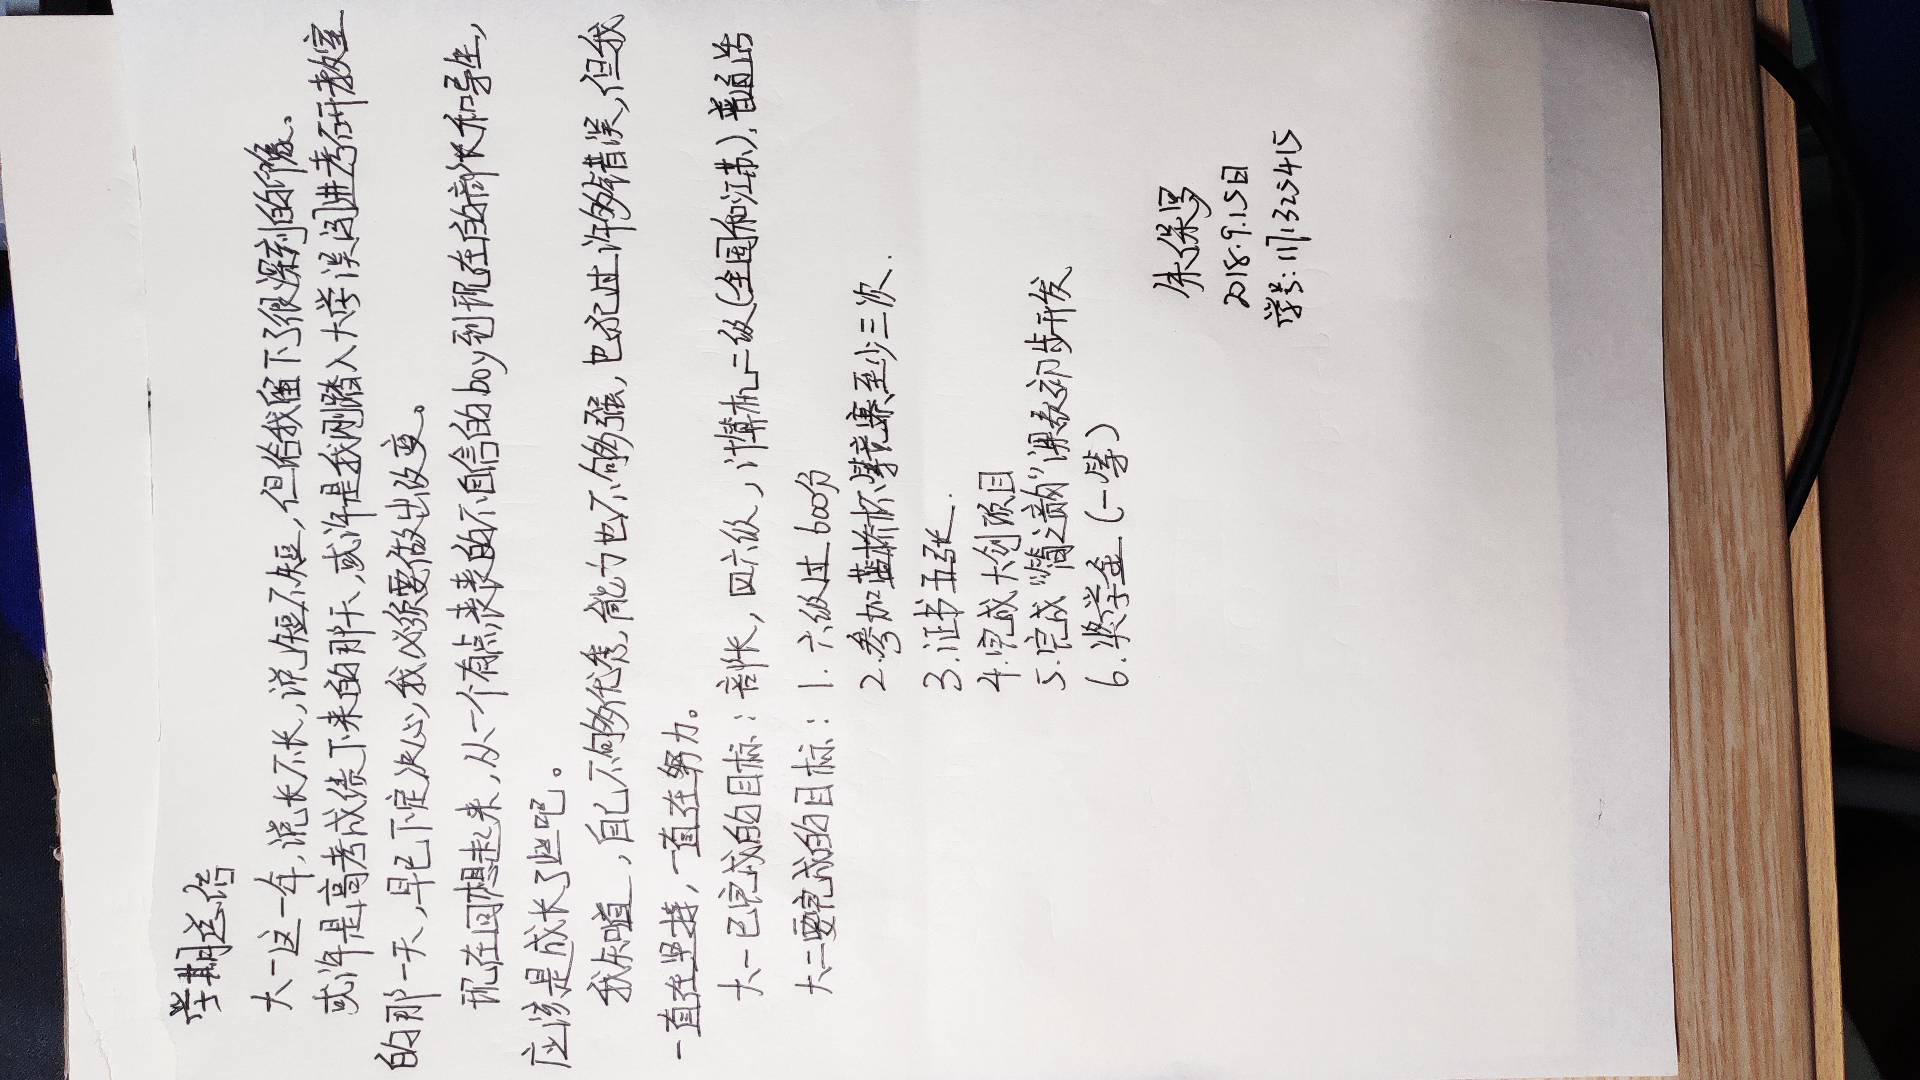 学期总结
大一这一年,说长不长,说短不短,但给我留下了很深刻的印象。
或许是高考成绩下来的那天,或许是我刚踏入大学误闯进考研教室
的那一天,早已下定决心,我必须要做出改变。
现在回想起来,从一个有点丧丧的不自信的boy到现在的部长和导生,
应该是成长了些吧。
我知道,自己不够优秀,能力也不够强,也犯过许多错误,但我
一直在坚持,一直在努力。
大一已完成的目标:部长,四六级,计算机二级(全国和江苏),普通话
大二要完成的目标:1.六级过600分
2.参加蓝桥杯等竞赛至少三次.
3.证书五张.
4.完成大创项目
5.完成“简之韵”课表初步开发
6.奖学金(一等)
朱保罗
2018.9.15日
学号:1171325415